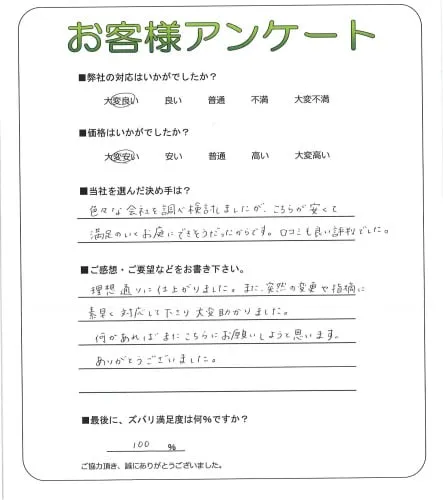 お客様アンケート
■弊社の対応はいかがでしたか？
大変良い 良い 普通 不満 大変不満
■価格はいかがでしたか？
大変安い 安い 普通 高い 大変高い
■当社を選んだ決め手は？
色々な会社を調べ検討しましたが、こちらが安くて
満足のいくお庭にできそうだったからです。口コミも良い評判でした。
■ご感想・ご要望などをお書き下さい。
理想通りに仕上がりました。また、突然の変更や指摘に
素早く対応して下さり大変助かりました。
何かあればまたこちらにお願いしようと思います。
ありがとうございました。
■最後に、ズバリ満足度は何%ですか？
100 %
ご協力頂き、誠にありがとうございました。